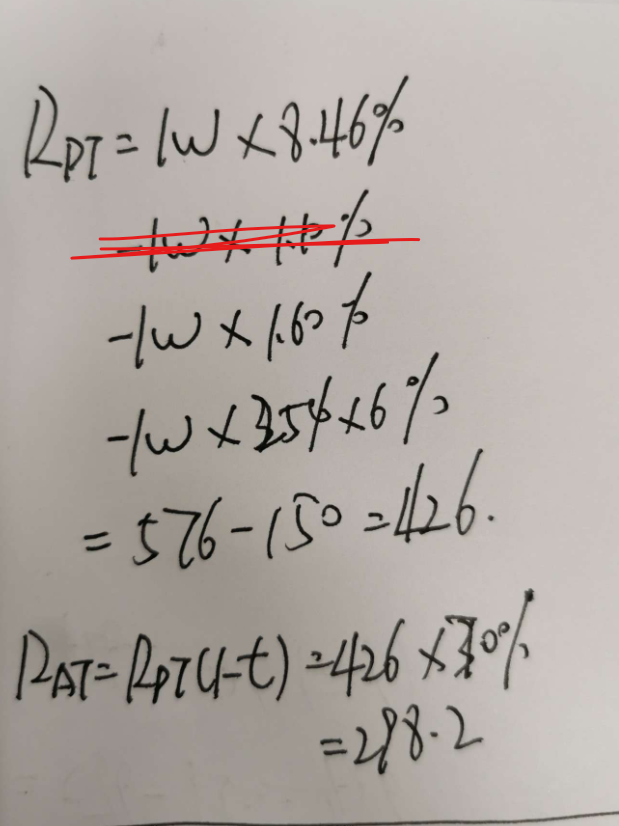 R_PT = 1W × 8.46%
-1W × 1.10%
-1W × 1.60%
-1W × 25% × 6%
= 576 - 150 = 426.
R_AT = R_PT(1-t) = 426 × 70%
= 298.2